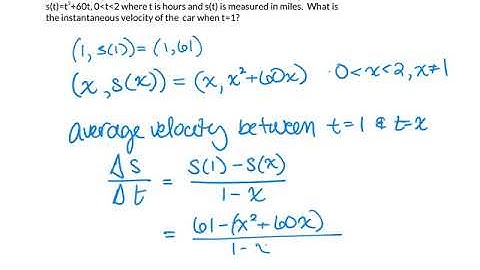 s(t)=t²+60t, 0<t<2 where t is hours and s(t) is measured in miles. What is
the instantaneous velocity of the car when t=1?
(1, s(1)) = (1, 61)
(x, s(x)) = (x, x²+60x) · 0<x<2, x≠1
average velocity between t=1 & t=x
Δs/Δt = s(1)-s(x)/1-x
= 61-(x²+60x)/1-